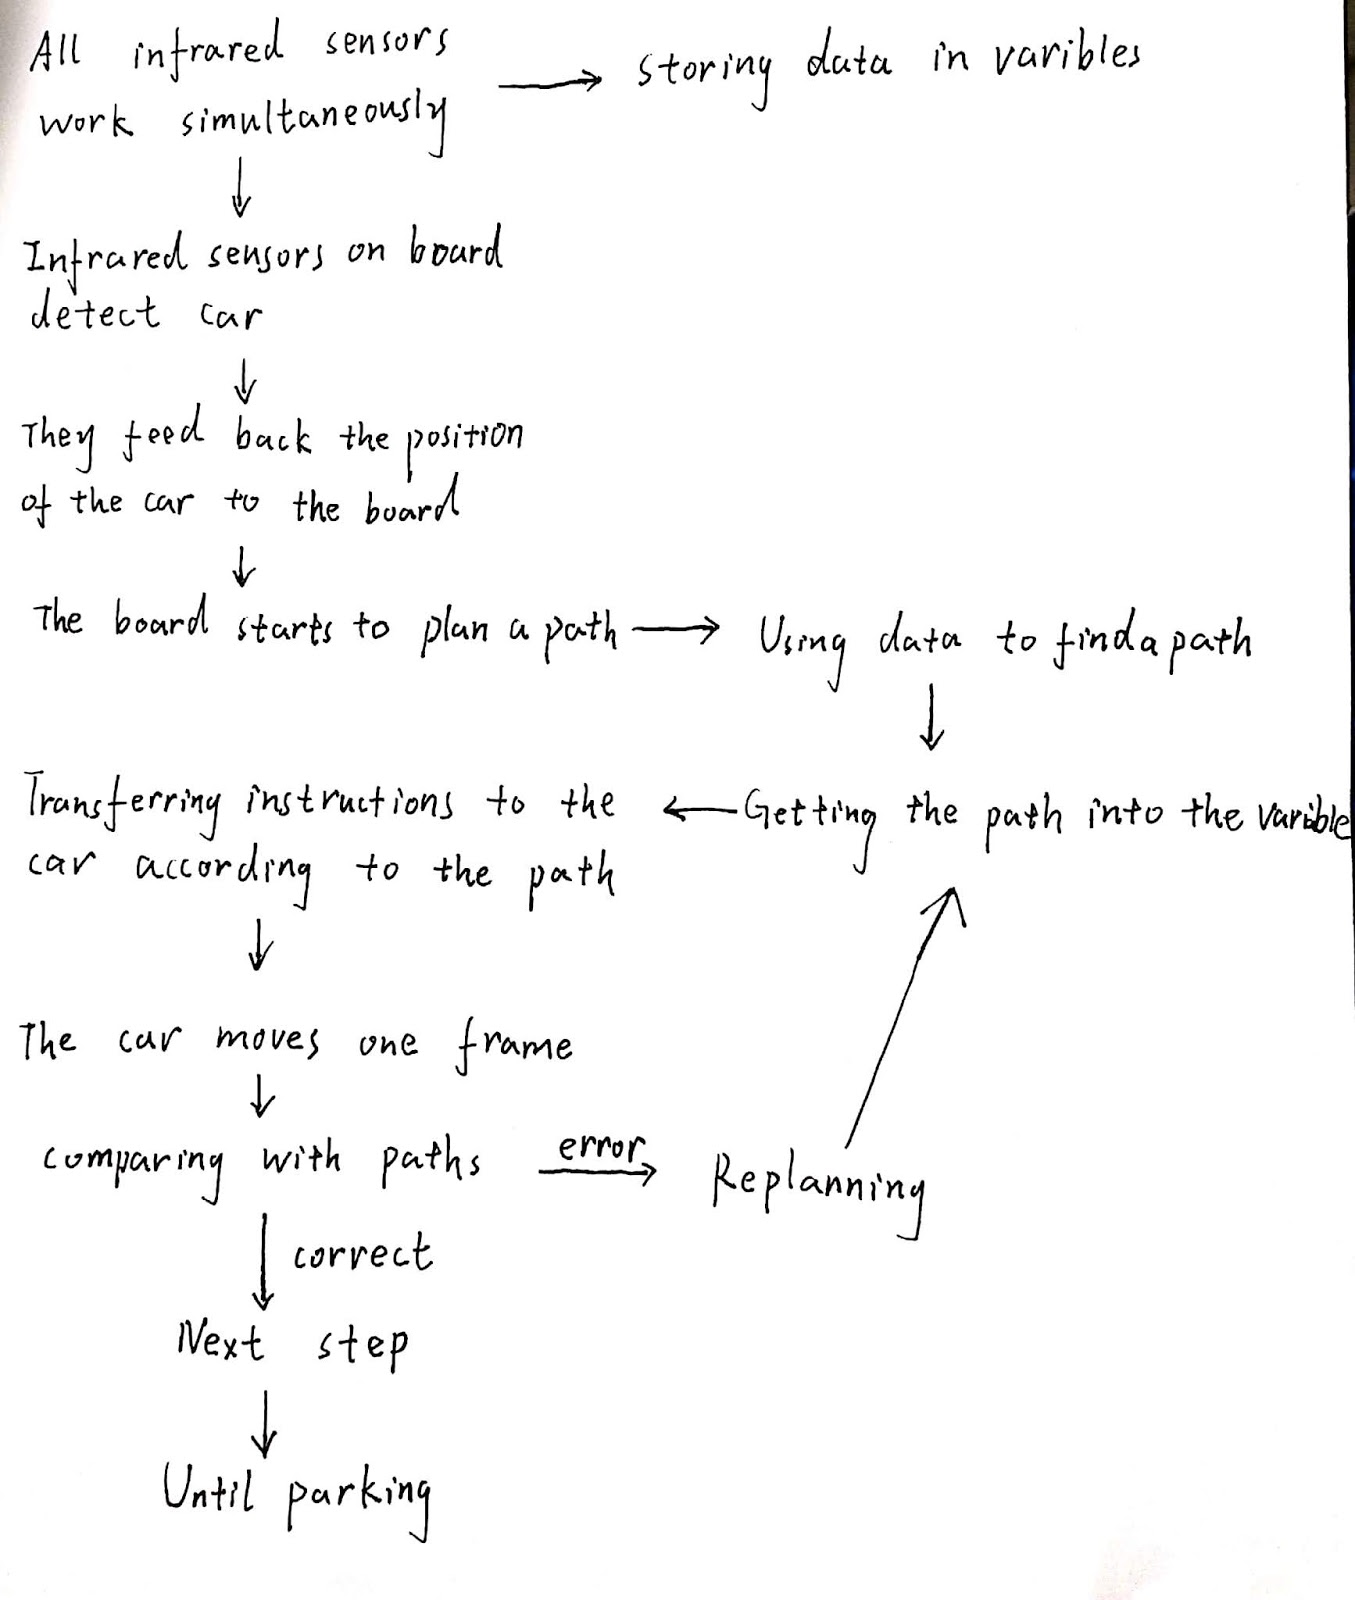 All infrared sensors
work simultaneously
storing data in varibles
Infrared sensors on board
detect car
They feed back the position
of the car to the board
The board starts to plan a path
Using data to find a path
Transferring instructions to the
car according to the path
Getting the path into the varible
The car moves one frame
comparing with paths
error
Replanning
correct
Next step
Until parking